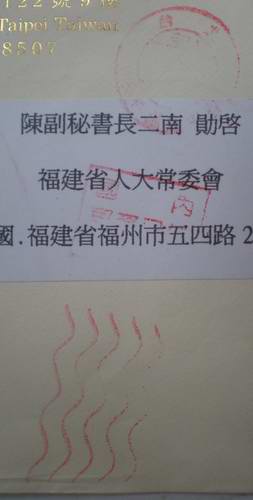 122號9樓
Taipei Taiwan
8507
陳副秘書長二南 勛啓
福建省人大常委會
國.福建省福州市五四路2
國內